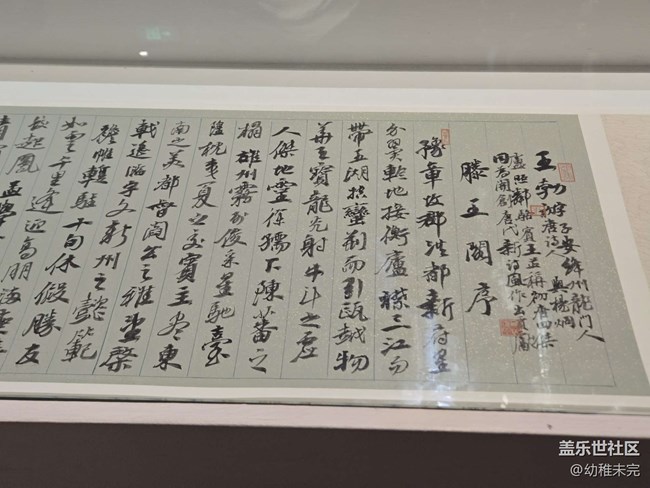 王勃字子安絳州龍门人
初唐诗人與楊炯
盧照鄰駱賓王並稱初唐四杰
同為開創唐代新詩風作出貢獻
滕王閣序
豫章故郡洪都新府星
分翼軫地接衡廬襟三江而
帶五湖控蠻荊而引甌越物
華天寶龍光射牛斗之虛
人傑地靈徐孺下陳蕃之
榻雄州霧列俊采星馳臺
隍枕夷夏之交賓主盡東
南之美都督閻公之雅望棨
戟遥臨宇文新州之懿範
襜帷暫駐十旬休假勝友
如雲千里逢迎高朋滿座
起鳳孟學
盖乐世社区
@幼稚未完